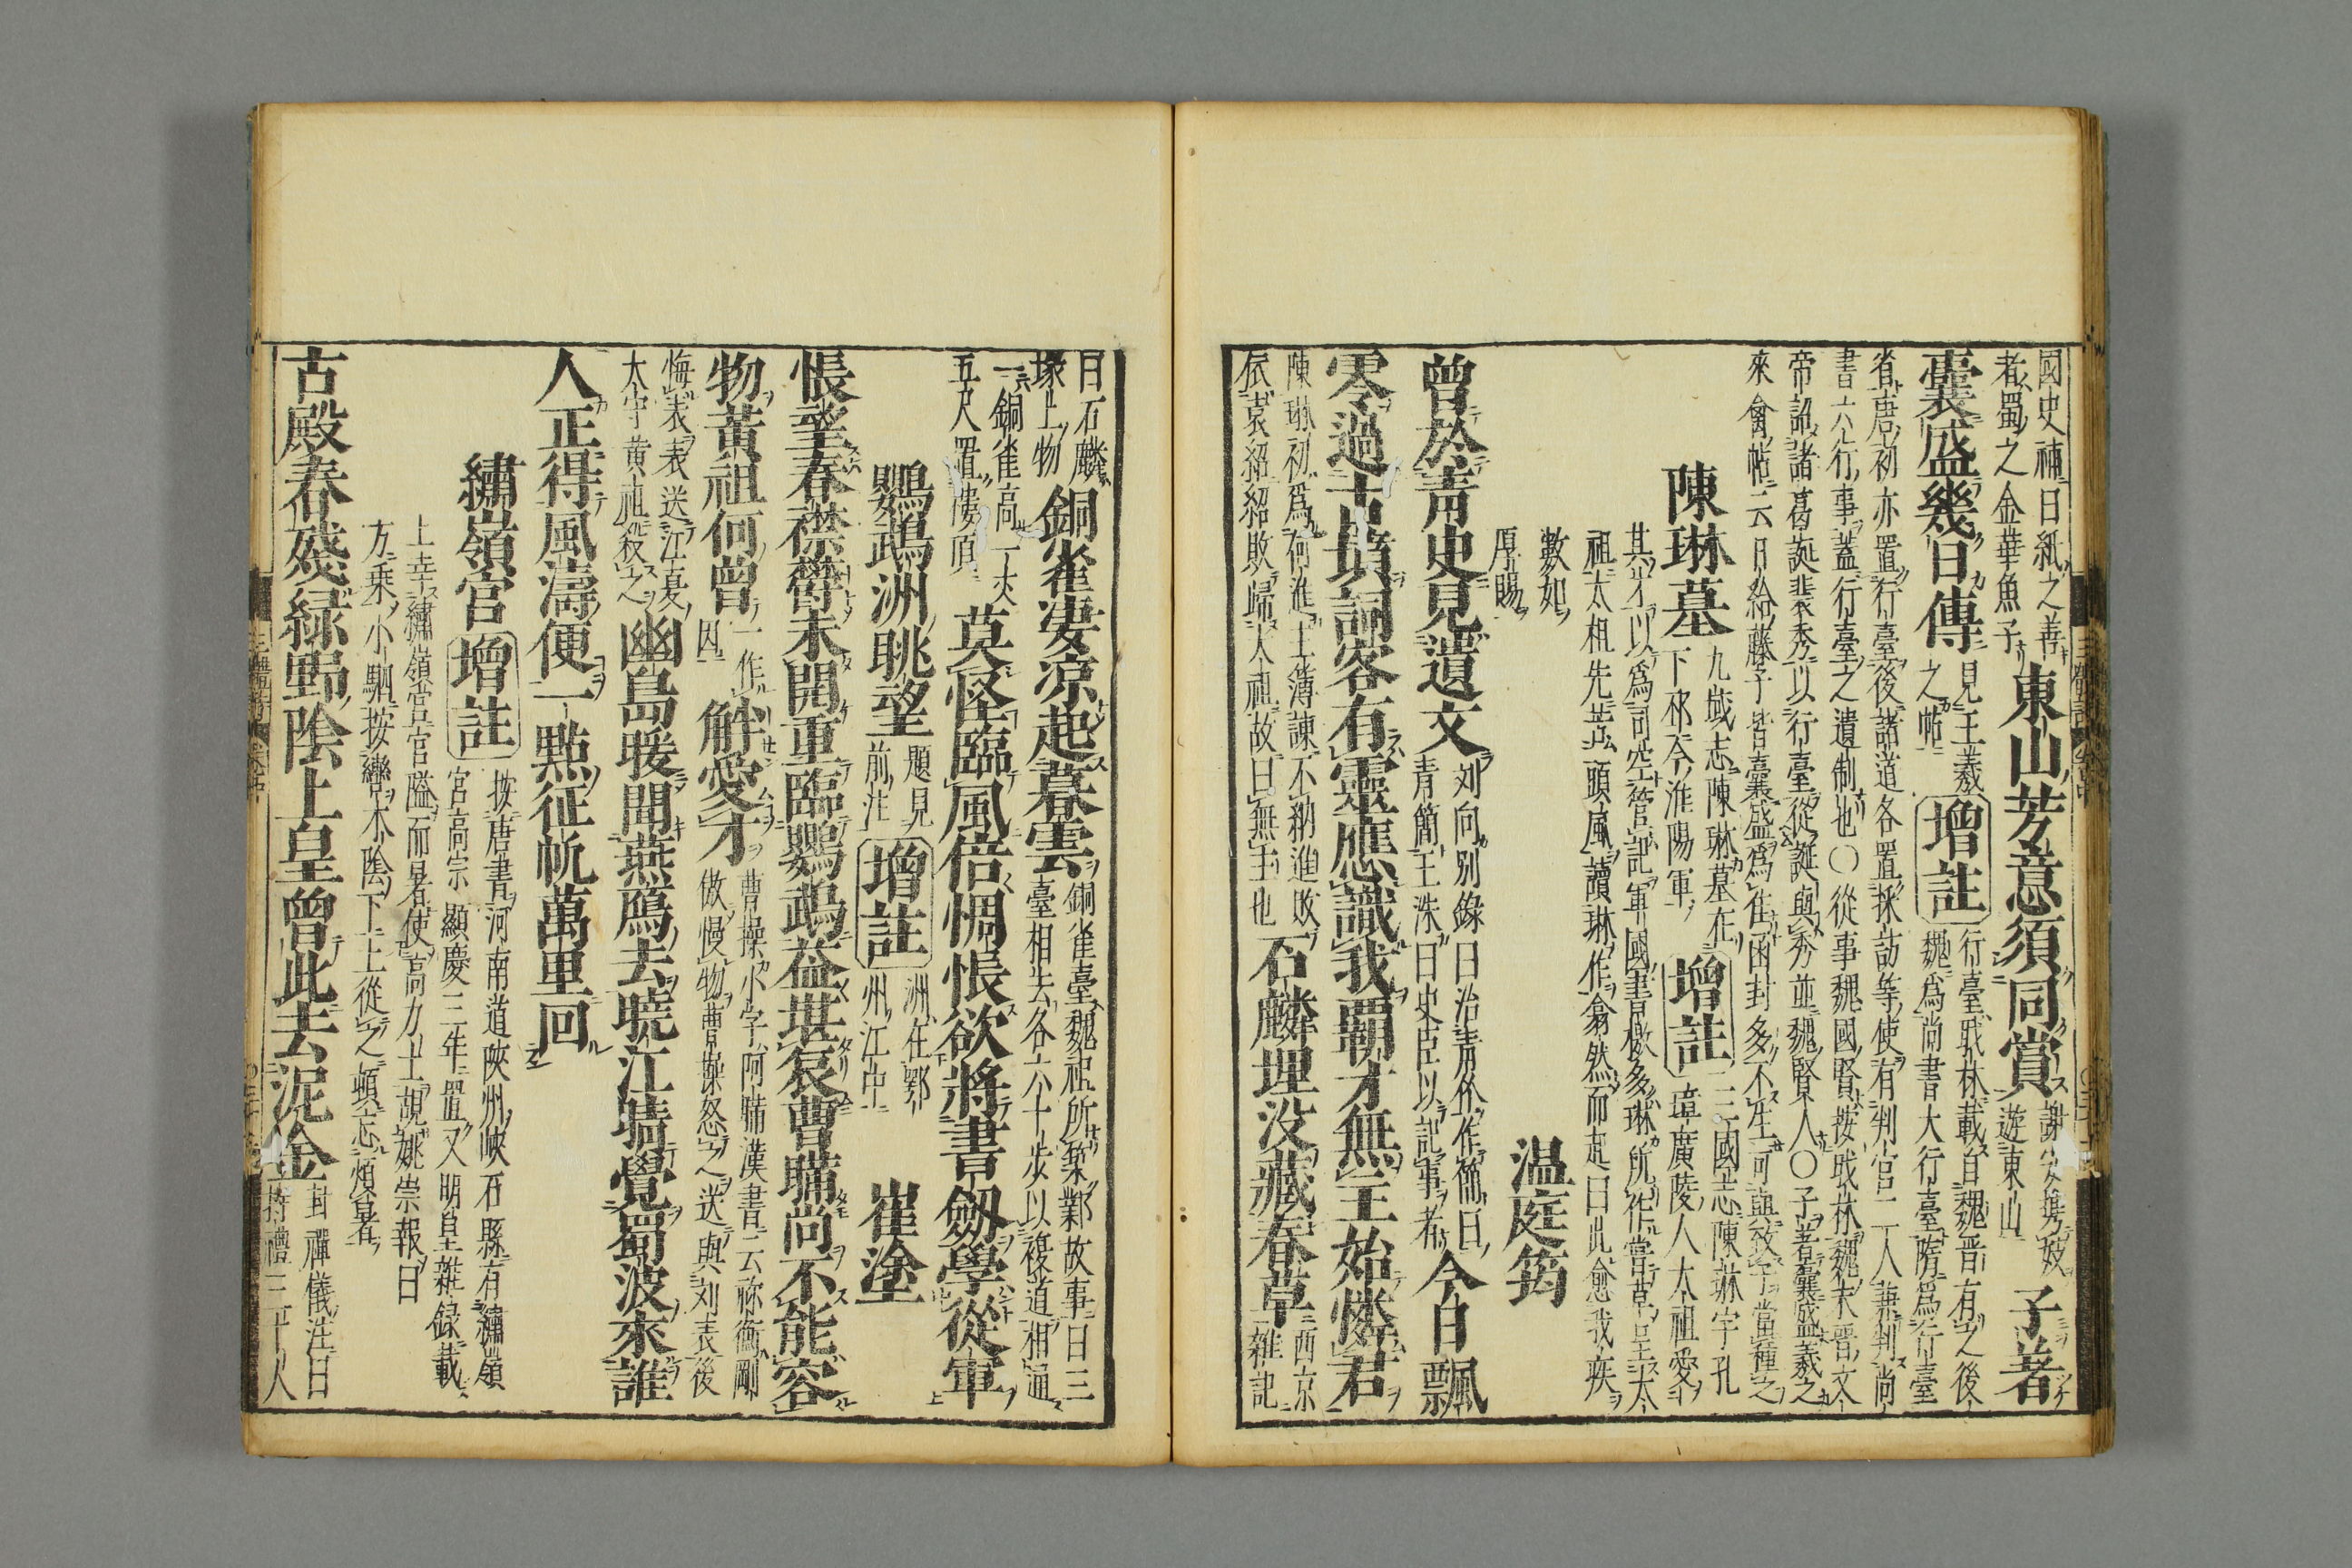 國史補曰紙之善
者蜀之金華魚子
東山芳意須同賞
謝安携妓
遊東山
子著
囊盛幾日傳
見王羲
之帖
增註
行臺戢林載自魏晋有之後
魏爲尚書大行臺隋爲行臺
省唐初亦置行臺後諸道各置採訪等使有判官二人兼判尚
書六行事蓋行臺之遺制也○從事魏國賢按戢林魏末晋文
帝詔諸葛誕裴秀以行臺從誕與秀並魏賢人○子著囊盛羲之
來禽帖云日給藤子皆囊盛爲佳函封多不生可益致子當種之
陳琳墓
九域志陳琳墓在
下邳今淮陽軍
增註
三國志陳琳字孔
璋廣陵人太祖愛
其才以爲司空管記軍國書檄多琳所作嘗草呈太
祖太祖先苦頭風讀琳作翕然而起曰此愈我疾
數如
厚賜
温庭筠
曾於青史見遺文
刘向別錄曰治青竹作簡曰
青簡王洙曰史臣以記事者
今日飄
零過古墳詞客有靈應識我覇才無主始憐君
陳琳初爲何進主簿諫不納進敗
依袁紹紹敗歸太祖故曰無主也
石麟埋没藏春草
西京
雜記
曰石麟
塚上物
銅雀凄凉起暮雲
銅雀臺魏祖所築鄴故事曰三
臺相去各六十步以複道相通
一銅雀高一丈
五尺置樓頂
莫怪臨風倍惆悵欲將書劔學從軍
鸚鵡洲眺望
題見
前注
增註
洲在鄂
州江中
崔塗
悵望春襟鬱未開重臨鸚鵡益堪哀曹瞞尚不能容
物黃祖何曾
一作
因
解愛才
曹操小字阿瞞漢書云祢衡剛
傲慢物曹操怒之送與刘表後
悔表表送江夏
太守黄祖殺之
幽島暖聞燕鴈去曉江晴覺蜀波來誰
人正得風濤便一點征帆萬里回
繡嶺宮
增註
按唐書河南道陝州峽石縣有繡嶺
宮高宗顯慶三年置又明皇雜録載
上幸繡嶺宮宮隘而暑使高力士覘姚崇報曰
方乘小駟按轡木陰下上從之頓忘煩暑
古殿春殘緑野陰上皇曾此去泥金
封禪儀注曰
持禮三十人